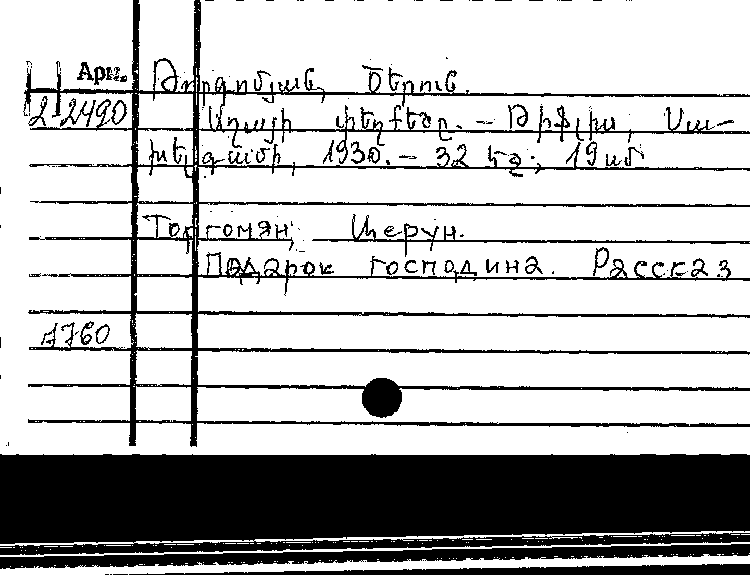 Арм. Թորգոմյան, Ծերուն.
2-2490 Աղայի փեշքեշը. – Թիֆլիս, Սա–
խելգամի, 1930. – 32 էջ; 19 սմ
Торгомян, Церун.
Подарок господина. Рассказ
1760